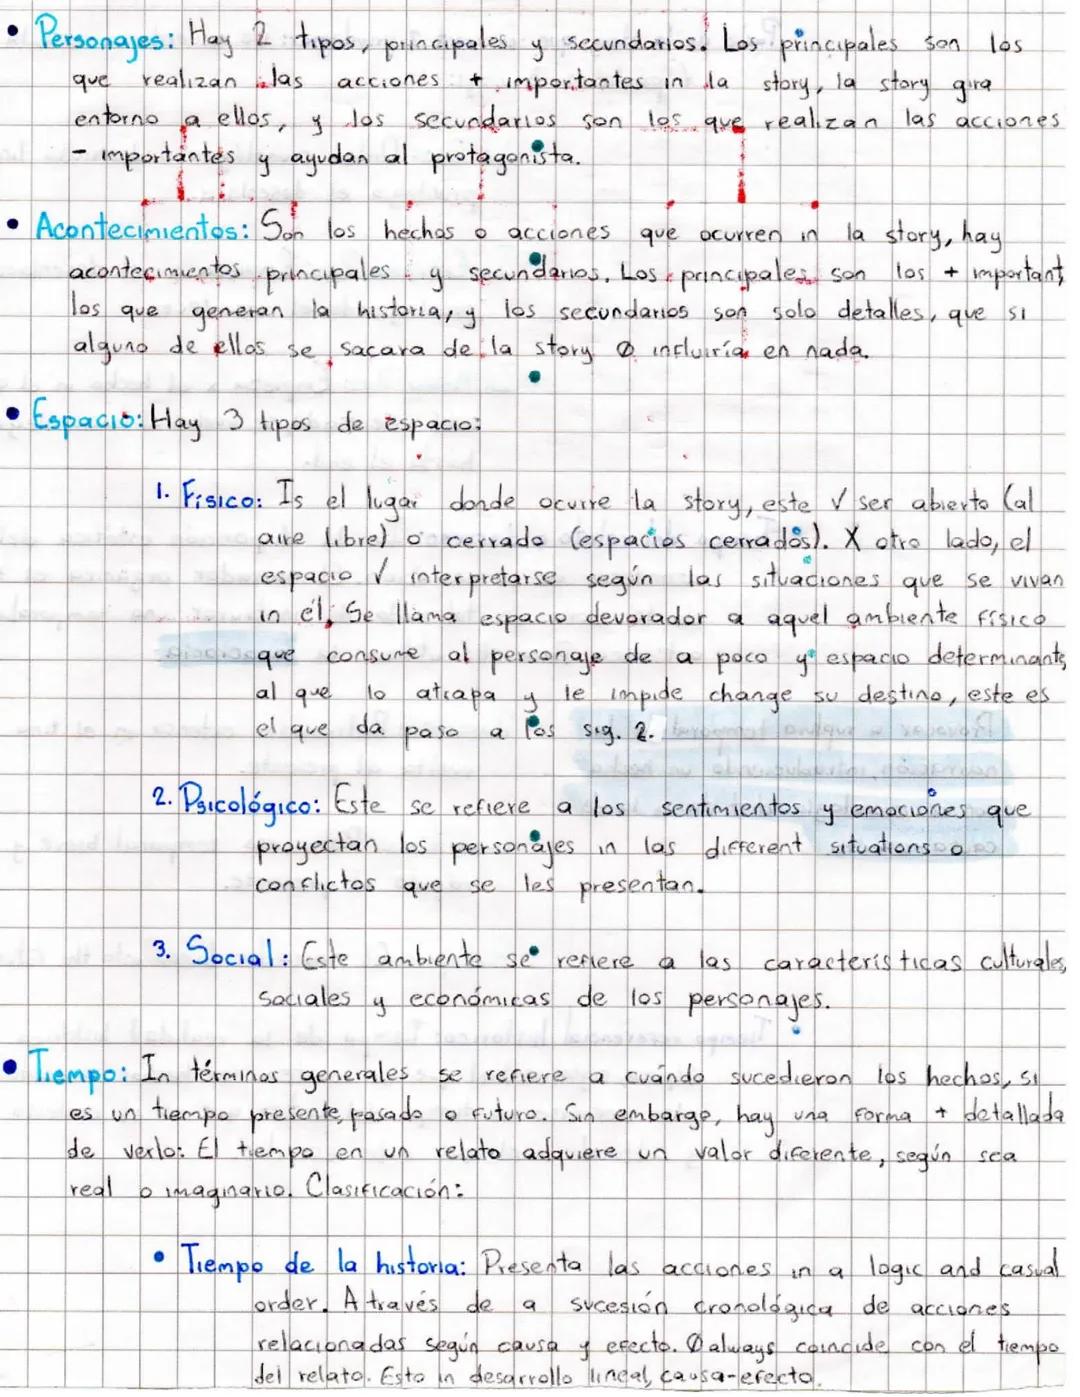 • Personajes: Hay 2 tipos, principales y secundarios. Los principales son los
que realizan las acciones + importantes in la story, la story gira
entorno a ellos, y los secundarios son los que realizan las acciones
- importantes y ayudan al protagonista.
• Acontecimientos: Son los hechos o acciones que ocurren in la story, hay
acontecimientos principales y secundarios. Los principales son los + important,
los que generan la historia, y los secundarios son solo detalles, que si
alguno de ellos se sacara de la story Ø influiría en nada.
• Espacio: Hay 3 tipos de espacio:
1. Físico: Is el lugar donde ocurre la story, este √ ser abierto (al
aire libre) o cerrado (espacios cerrados). X otro lado, el
espacio √ interpretarse según las situaciones que se vivan
in él. Se llama espacio devorador a aquel ambiente físico
que consume al personaje de a poco y espacio determinante,
al que lo atrapa y le impide change su destino, este es
el que da paso a los sig. 2.
2. Psicológico: Este se refiere a los sentimientos y emociones que
proyectan los personajes in las different situations o
conflictos que se les presentan.
3. Social: Este ambiente se refiere a las características culturales,
sociales y económicas de los personajes.
• Tiempo: In términos generales se refiere a cuándo sucedieron los hechos, si
es un tiempo presente, pasado o futuro. Sin embargo, hay una forma + detallada
de verlo: El tiempo en un relato adquiere un valor diferente, según sea
real o imaginario. Clasificación:
• Tiempo de la historia: Presenta las acciones in a logic and casual
order. A través de a sucesión cronológica de acciones
relacionadas según causa y efecto. Ø always coincide con el tiempo
del relato. Esto in desarrollo lineal, causa-efecto.